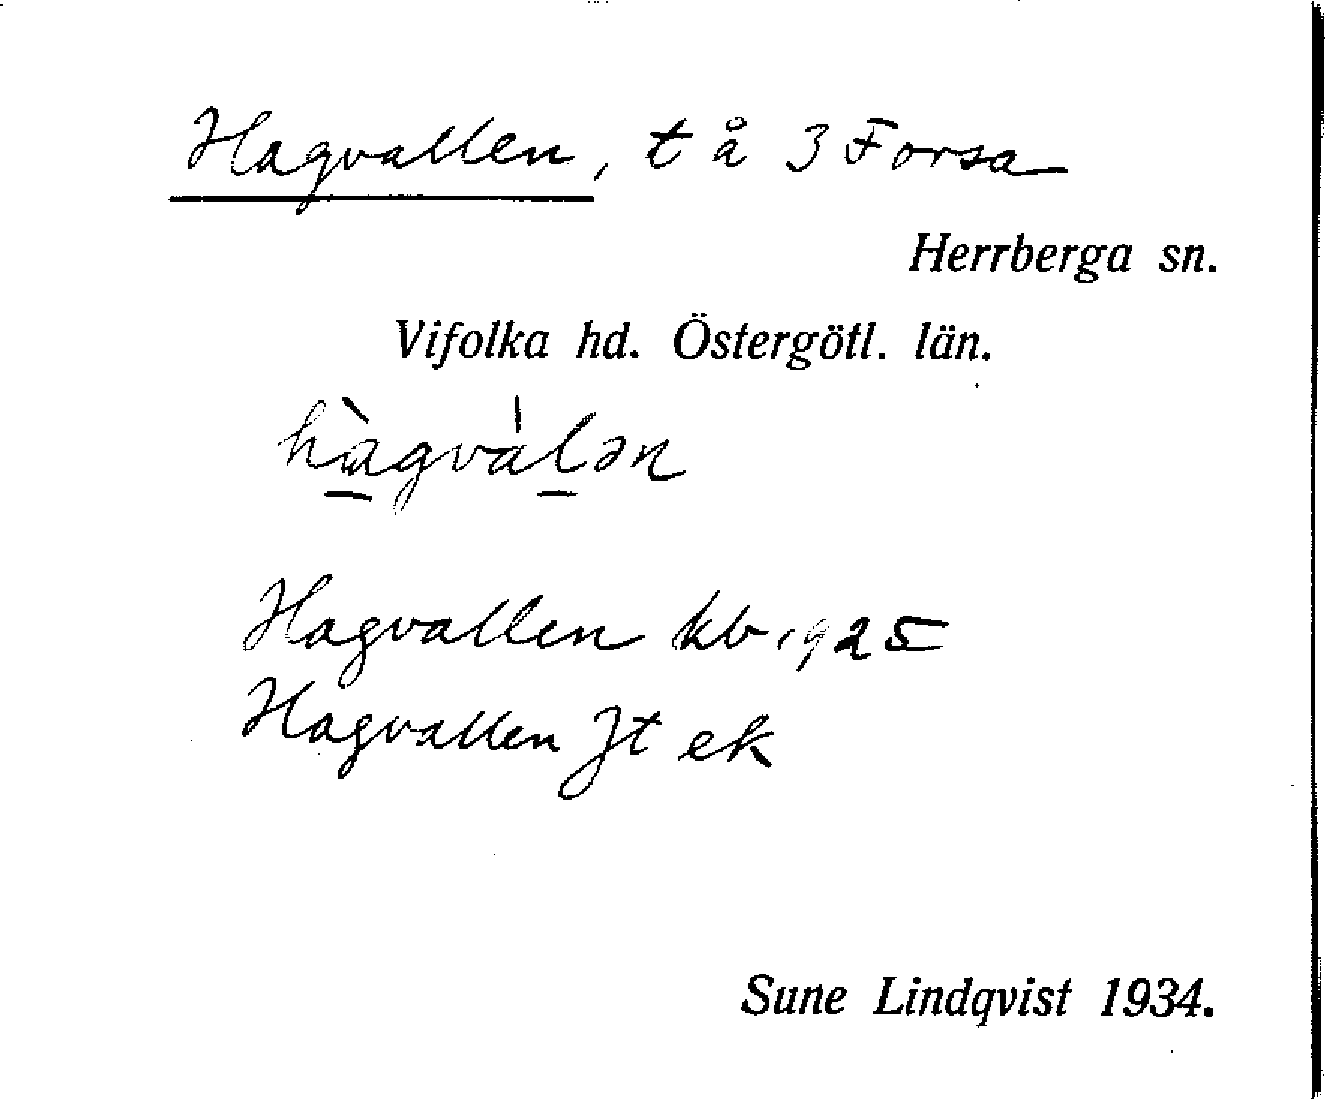 Hagvallen, t å 3 Forsa
Herrberga sn.
Vifolka hd. Östergötl. län.
hàgvàlən
Hagvallen kb 1925
Hagvallen Jt ek
Sune Lindqvist 1934.